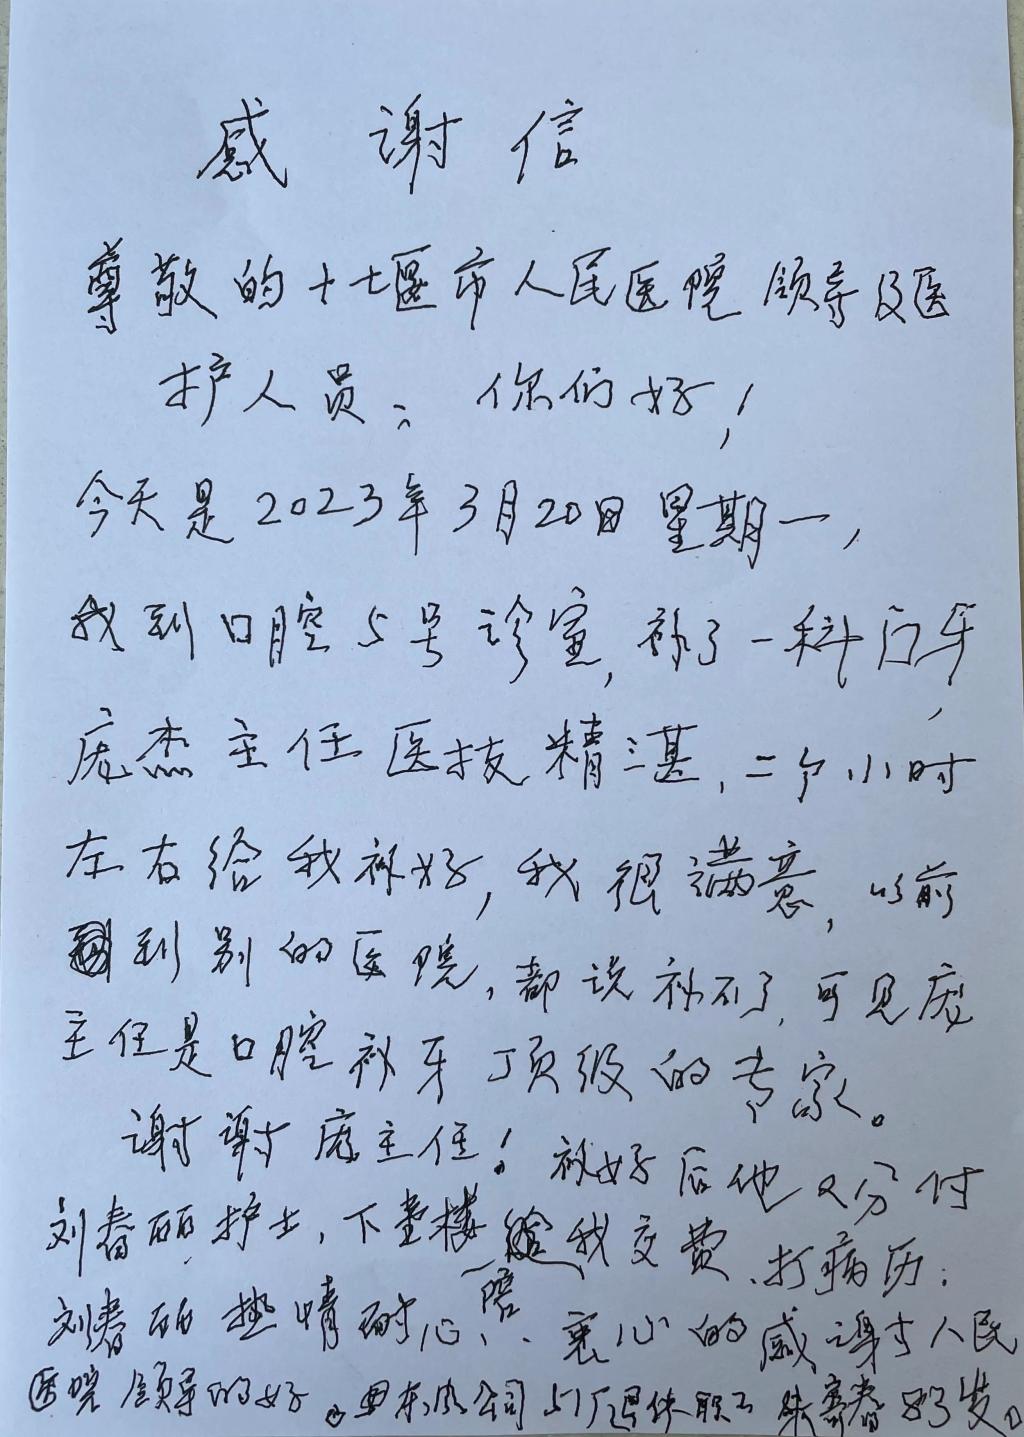 感谢信
尊敬的十七堰市人民医院领导及医
护人员：你们好！
今天是2023年3月20日星期一，
我到口腔5号诊室，补了一科门牙，
庞杰主任医技精湛，二个小时
左右给我补好，我很满意，以前
到别的医院，都说补不了，可见庞
主任是口腔补牙顶级的专家。
谢谢庞主任！补好后他又分付
刘春丽护士，下楼陪我交费、打病历；
刘春丽热情耐心、衷心的感谢人民
医院领导的好。东风公司51厂退休职工 朱 春 83岁。